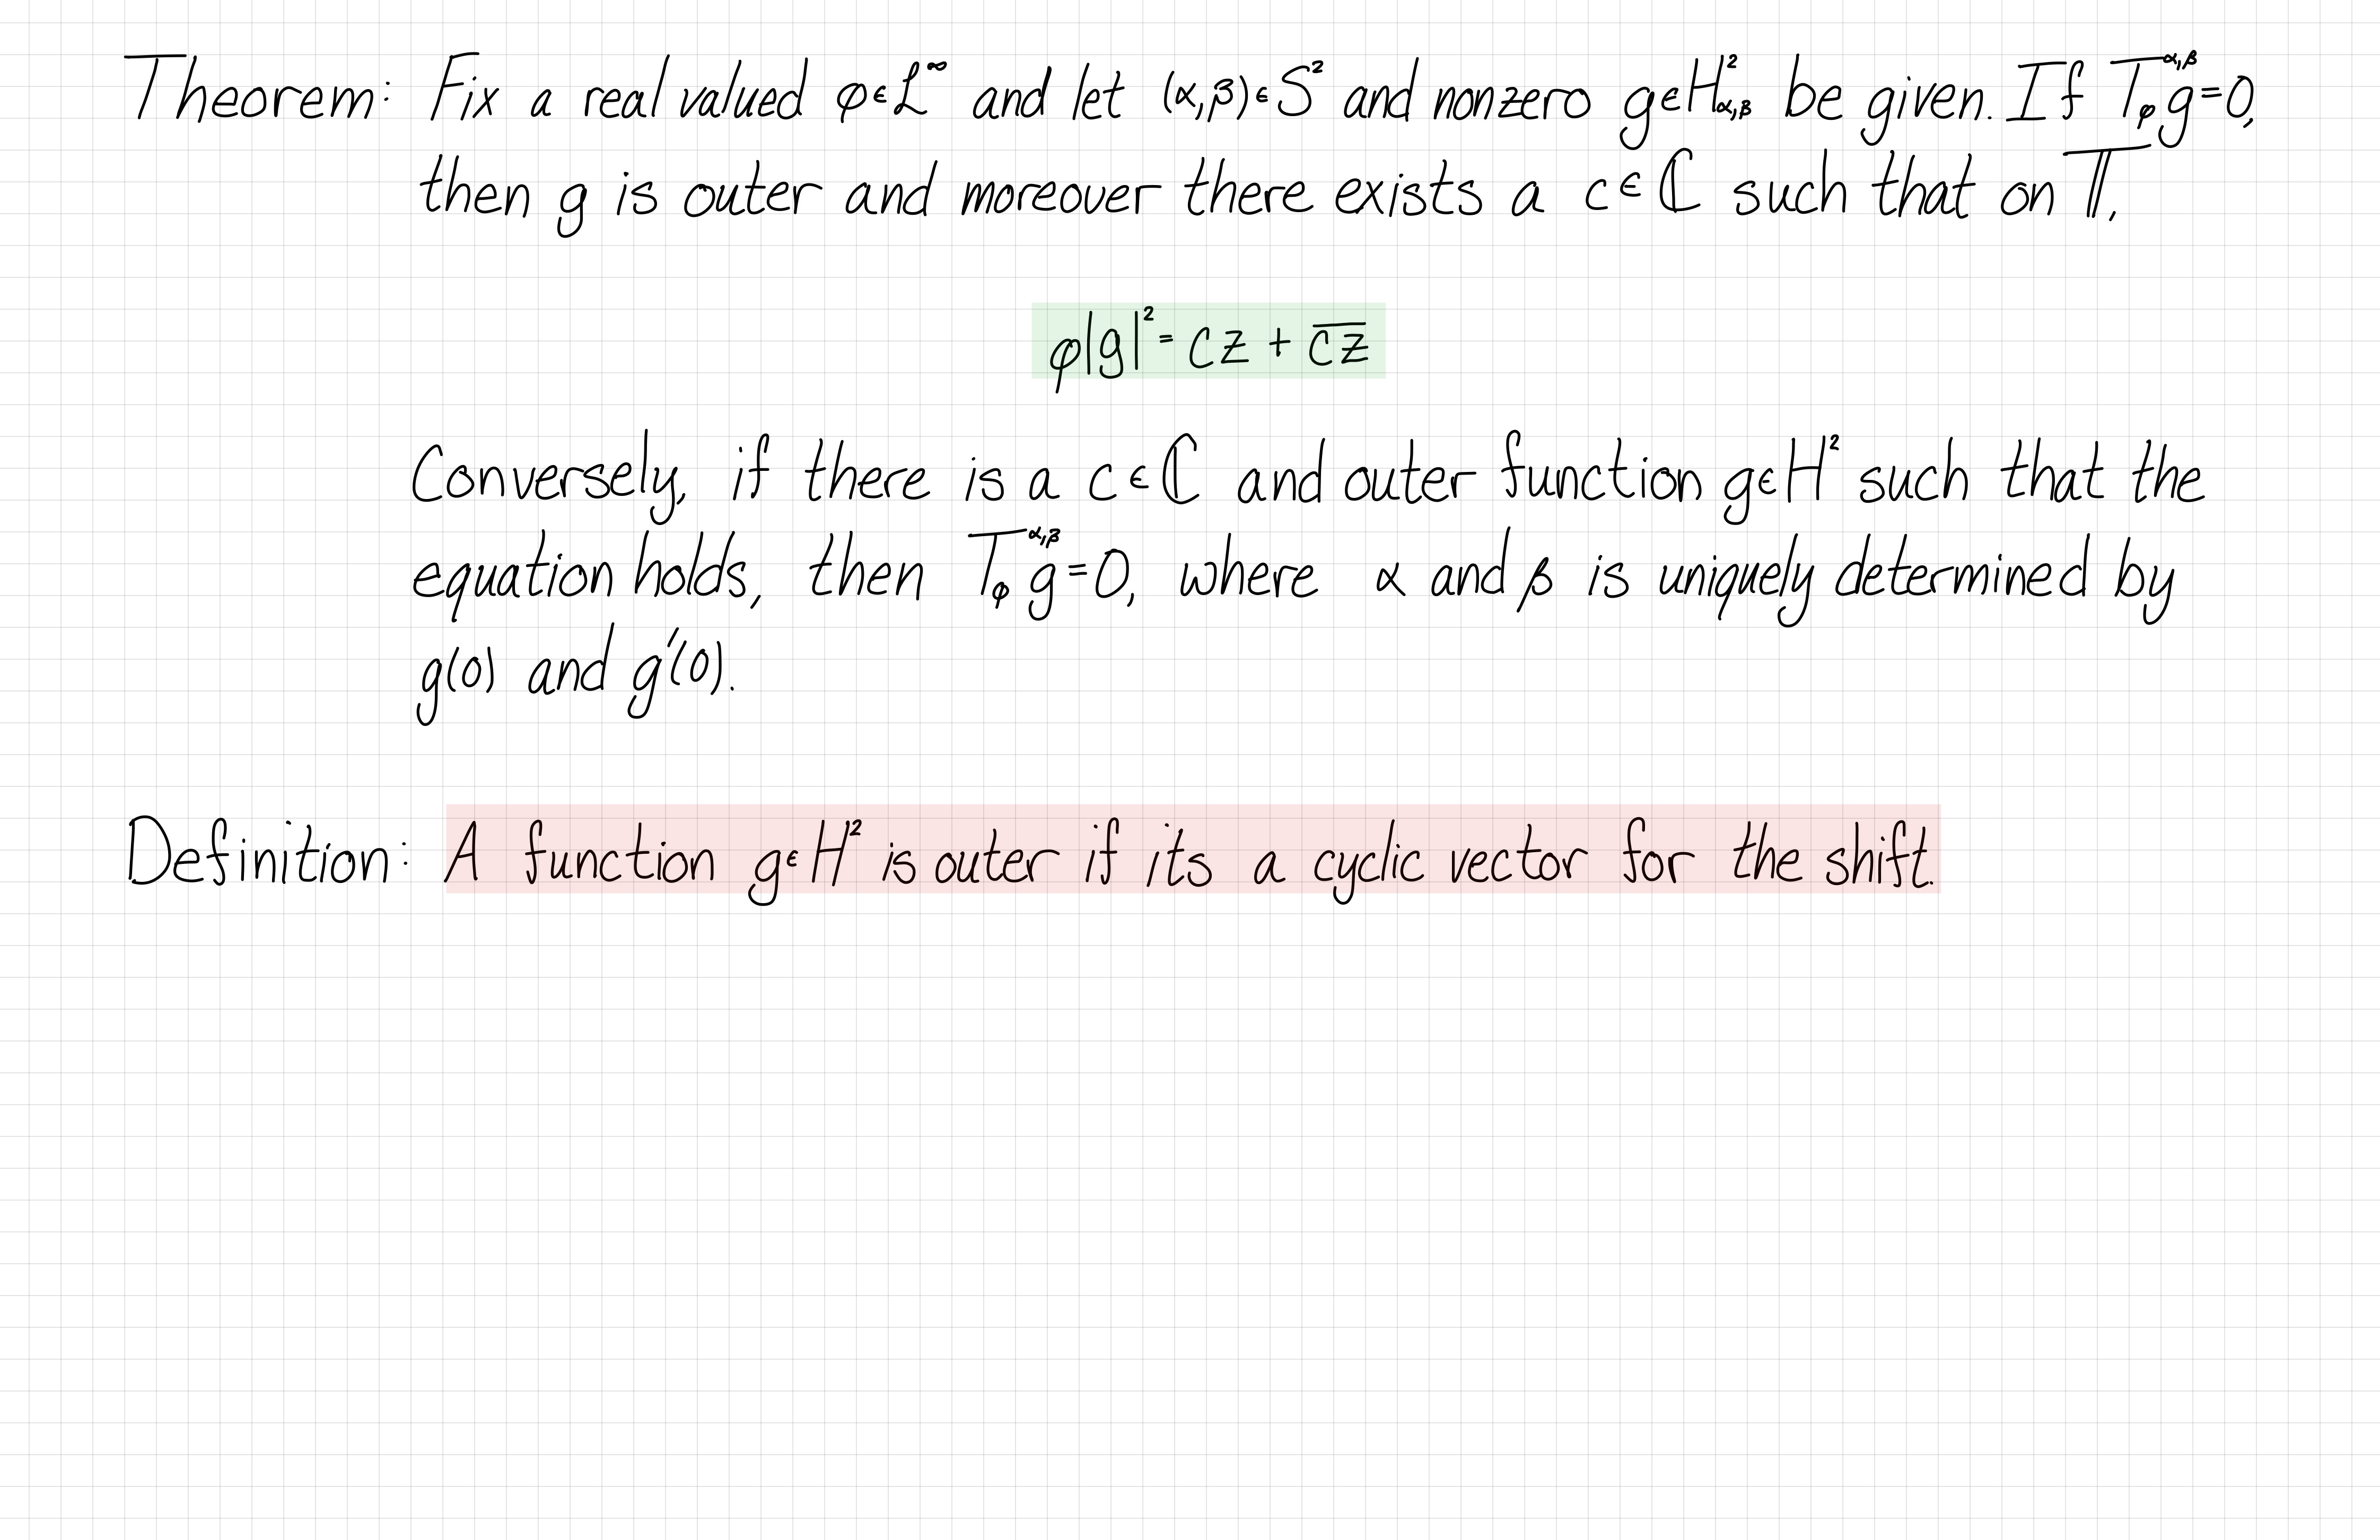 Theorem: Fix a real valued φ∈L^∞ and let (α,β)∈S² and nonzero g∈H²_{α,β} be given. If T_φ^{α,β} g=0,
then g is outer and moreover there exists a c∈ℂ such that on 𝕋,
φ|g|² = cz + \overline{cz}
Conversely, if there is a c∈ℂ and outer function g∈H² such that the
equation holds, then T_φ^{α,β} g=0, where α and β is uniquely determined by
g(0) and g′(0).
Definition: A function g∈H² is outer if its a cyclic vector for the shift.